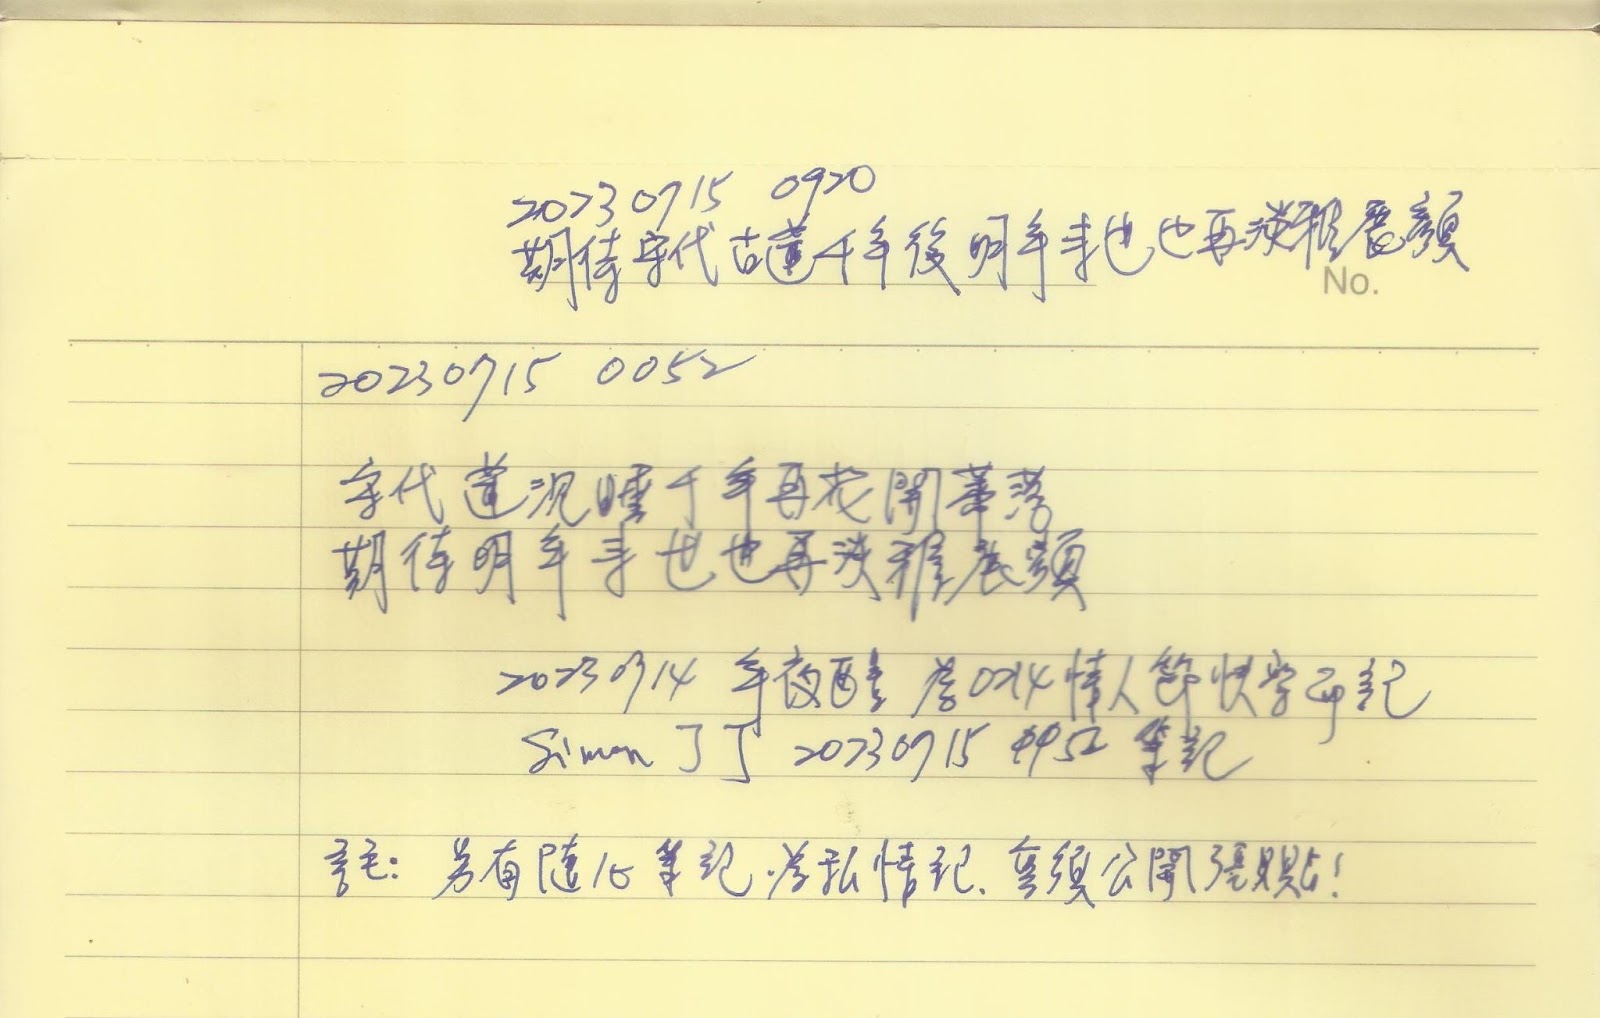 20230715 0920
期待宋代古蓮千年後明年手也也再淡雅展顏
No.
20230715 0052
宋代蓮沉睡千年再花開華落
期待明年手也也再淡雅展顏
20230714 年夜醒 為0214情人節快 記
Simon 丁丁 20230715 0052 筆記
註: 另有隨心筆記.為私情記、無須公開張貼!